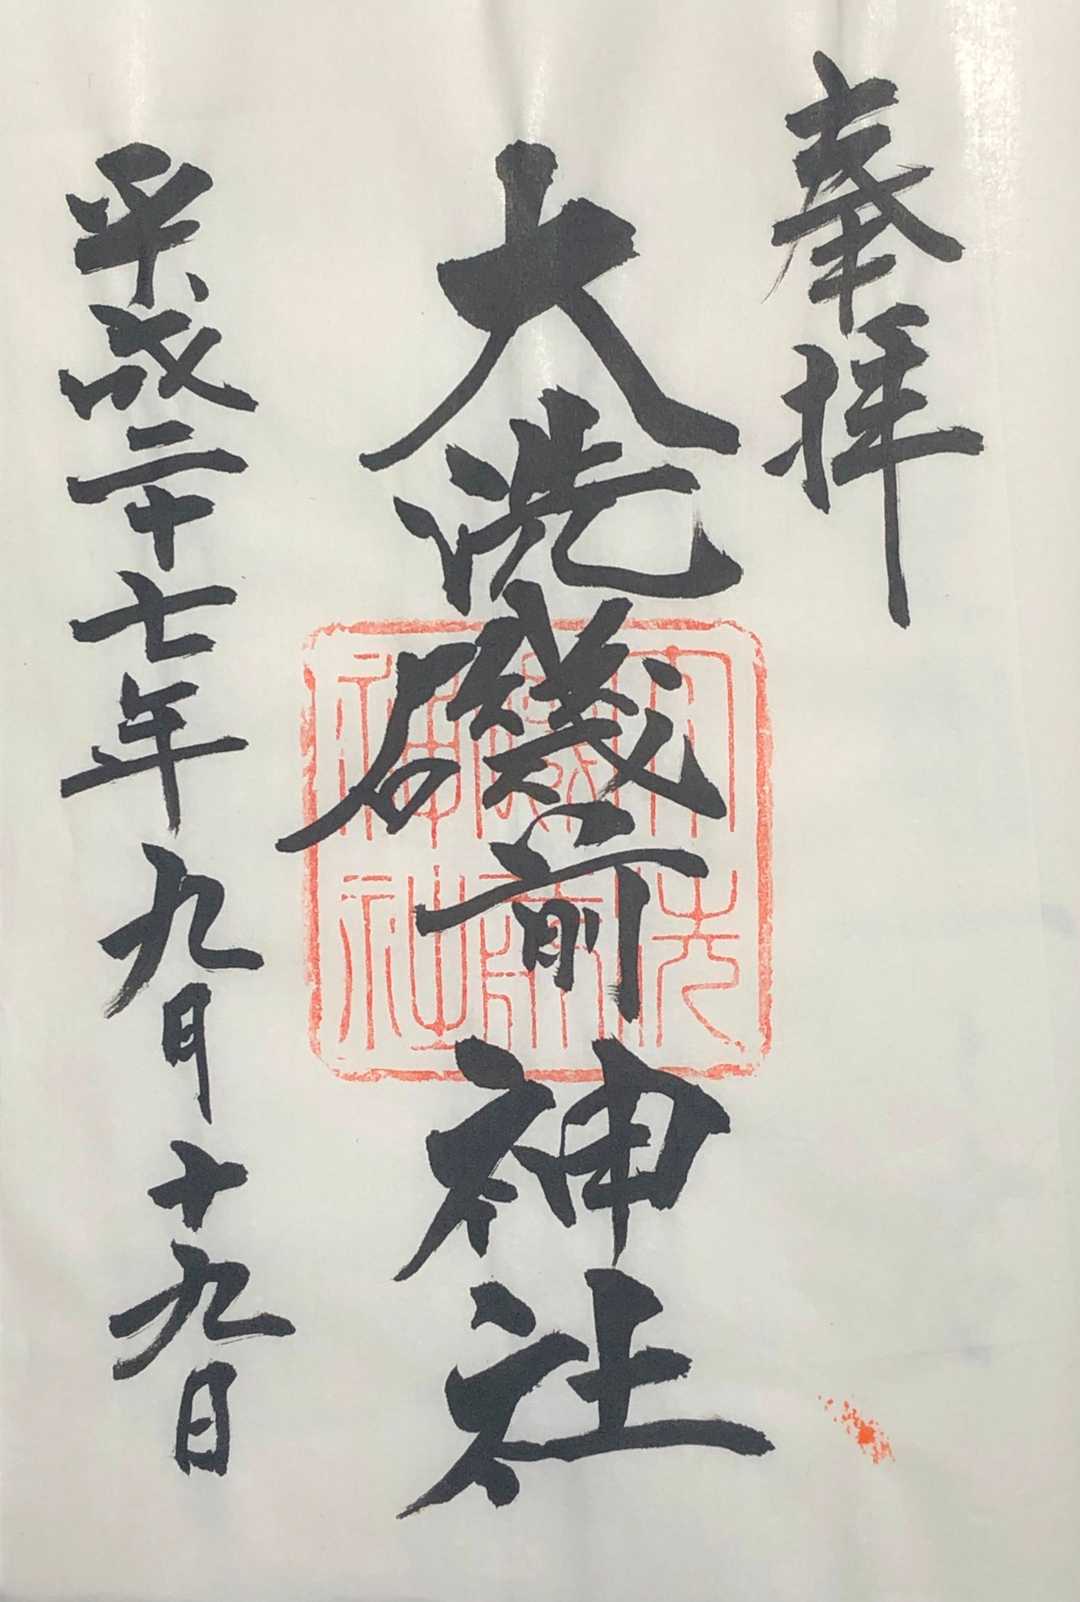 奉拝
大洗磯前神社
大洗
磯前
神社
平成二十七年九月十九日